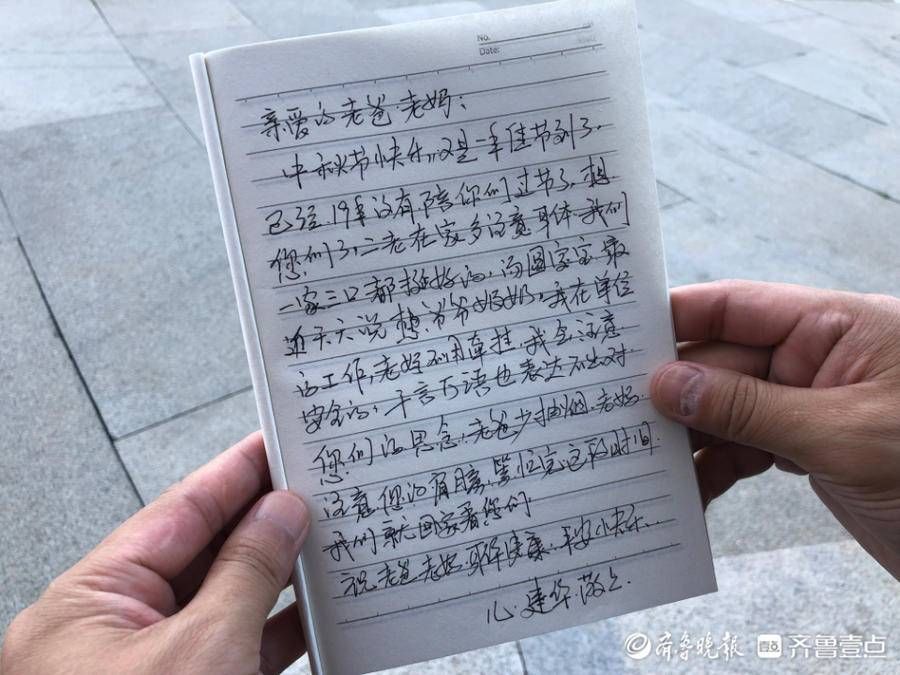 No.
Date:
亲爱的老爸.老妈:
中秋节快乐,又是一年佳节到了.
已经19年没有陪你们过节了,想
您们了,二老在家多注意身体.我们
一家三口都挺好的,汤圆宝宝最
近天天说想爷爷奶奶,我在单位
的工作,老妈不用牵挂,我会注意
安全的,千言万语也表达不出对
您们的思念,老爸少抽烟,老妈
注意您的肩膀,等忙完这段时间
我们就回家看您们
祝老爸老妈.身体健康,平安快乐...
建华.敬上.
齐鲁晚报 齐鲁壹点